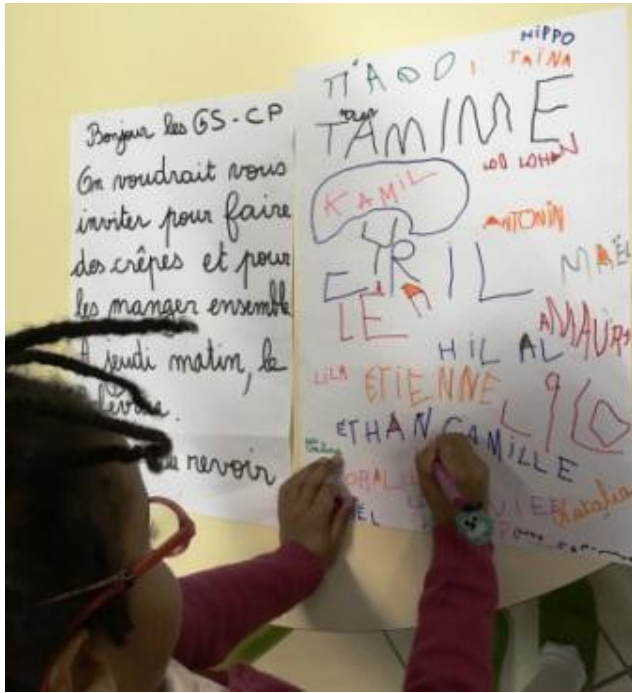 Bonjour les GS-CP
On voudrait vous
inviter pour faire
des crêpes et pour
les manger ensemble
jeudi matin, le
revoir
HIPPO
TAÏNA
TAMIME
LOHAN
KAMIL
ANTONIN
CYRIL
MAËL
LEA
AMAURY
HILAL
LILA
ETIENNE
LÉO
ETHAN CAMILLE
Natalia